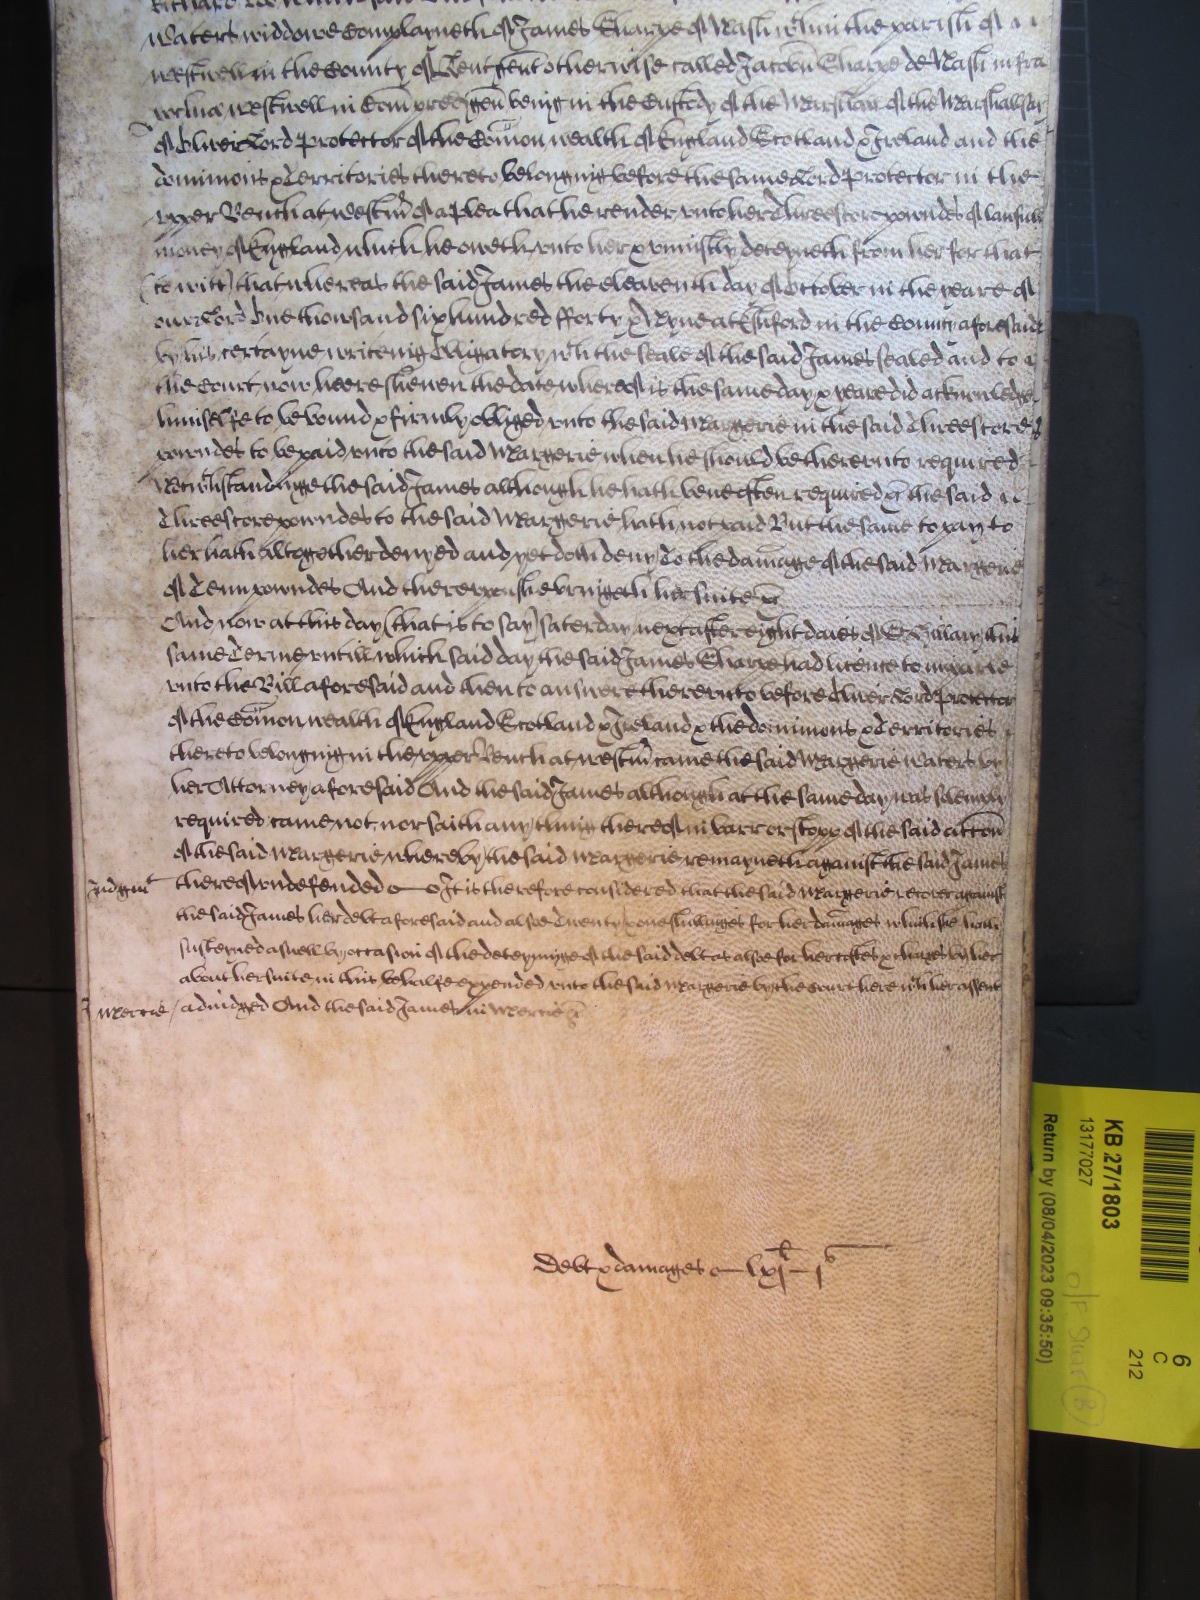 Waters widdowe Complayneth of James Sharpe of Nash wthin the parish of
Westwell in the County of Kent gent otherwise called Jacobu Sharpe de Nash infra
Westwell in Com pred gen being in the Custody of the Marshall of the Marshallsey
of Oliver Lord Protector of the Comon wealth of England Scotland & Ireland and the
dominions & Territories thereto belonging before the same Lord Protector in the
vpper Bench at Westm of a Plea that he render vnto her Threescore powndes of lawfull
money of England which he oweth vnto her & vniustly deteyneth from her for that
(to witt) that whereas the said James the eleaventh day of October in the yeare of
our Lord One thousand six hundred fforty & Nyne at Ashford in the County aforesaid
by his certayne writeing Obligatory wth the seale of the said James sealed and to
the Court now heere shewen the date whereof is the same day & yeare did acknowledge
himselfe to be bound & firmly obliged vnto the said Margerie in the said Threescore
powndes to be paid vnto the said Margerie when he should be therevnto required
Notwthstandinge the said James although he hath bene often required &c the said
Threescore powndes to the said Margerie hath not paid But the same to pay to
her hath altogether denyed and yet doth deny To the damage of the said Margerie
of Tenn powndes And therevpon she bringeth her suite &c
And now at this day (that is to say) Saterday next after eight daies of St Hillary this
same Terme vntill which said day the said James Sharpe had licence to imparle
vnto the Bill aforesaid and then to answere therevnto before Oliver Lord Protector
of the Comon wealth of England Scotland & Ireland & the dominions & Territories
thereto belonging in the vpper Bench at Westm came the said Margerie Waters by
her Attorney aforesaid And the said James although at the same day was solemnly
required came not nor saith any thing thereof in barr or stopp of the said accon
of the said Margerie whereby the said Margerie remayneth against the said James
Judgmt thereof vndefended It is therefore considered that the said Margerie recover against
the said James her debt aforesaid and alsoe Twenty & one shillinges for her damages which she hath
susteyned aswell by occasion of the deteyninge of the said debt as alsoe for her costes & charges by her
about her suite in this behalfe expended vnto the said Margerie by the Court here wth her assent
Mercie / adiudged And the said James in Mercie &c
Debt & damages lxjl js
KB 27/1803
13177027
Return by (08/04/2023 09:35:50)
6
C
212